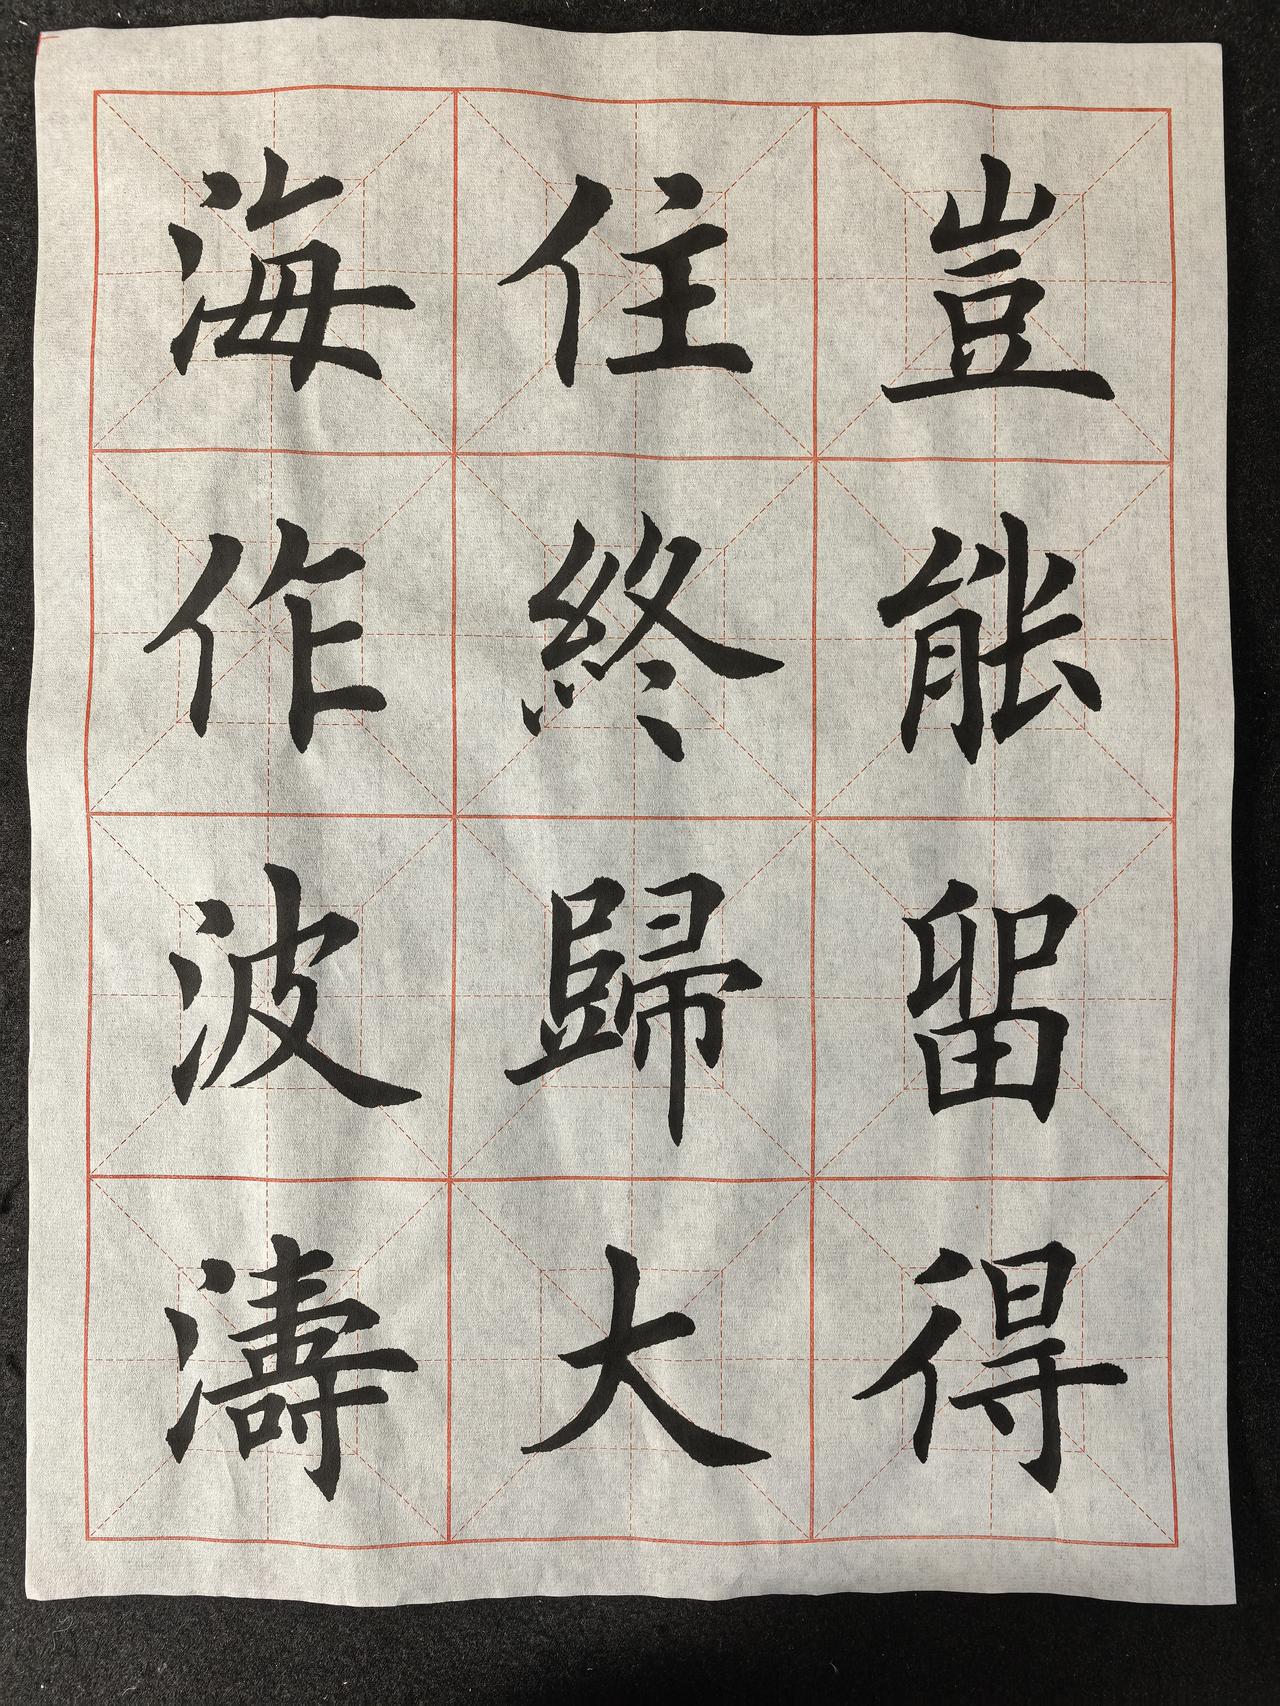 豈能留得
住終歸大
海作波濤